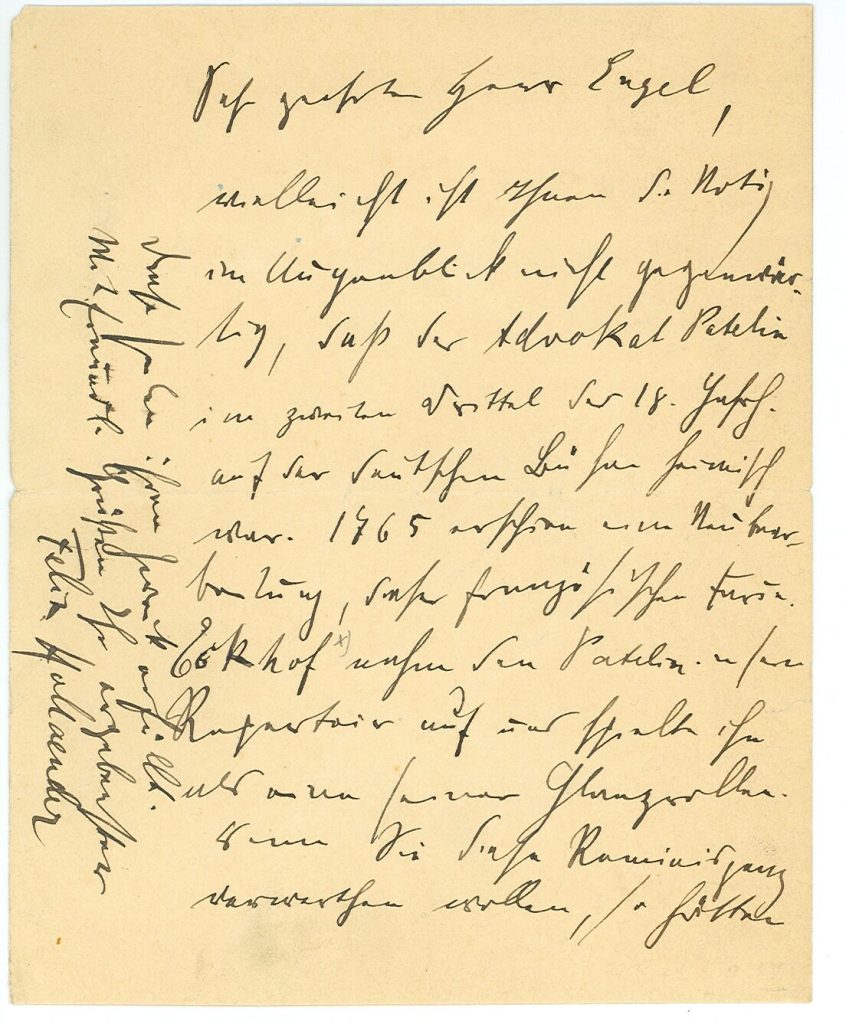 Sehr geehrter Herr Engel,
vielleicht ist Ihnen die Notiz
im Augenblick nicht gegenwär-
tig, daß der Advokat Patelin
im zweiten Drittel des 18. Jahrh.
auf der deutschen Bühne heimisch
war. 1765 erschien eine Neubear-
beitung dieser französischen Farce.
Eckhof x) nahm den Patelin in sein
Repertoir auf und spielte ihn
als eine seiner Glanzrollen.
Wenn Sie diese Reminiszenz
verwerthen wollen, so hätten
diese Zeilen ihren Zweck erfüllt.
Mit freundl. Grüßen Ihr ergebenster
Felix Hollaender